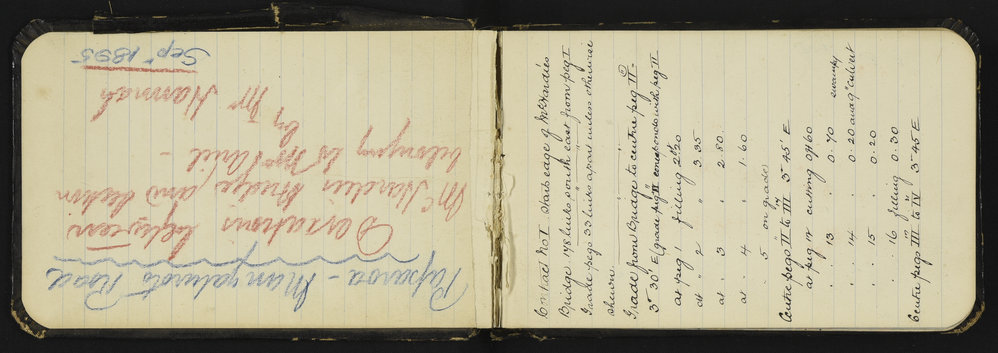 Paparoa - Mangaturoto Road
Deviations between
McHardies Bridge and Section
belonging to Mr
by Mr Hannah
Sep 1895
Contract No 1 starts edge of McHardies
Bridge 178 links south east from peg I
Grade pegs 33 links apart unless otherwise
shewn.
Grade from Bridge to centre peg II
3° 30' E (grade peg 11 corresponds with peg II
at peg 1 filling 2.20
at " 2 " 3.35
at " 3 " 2.80
at " 4 " 1.60
" 5 on grade
Centre pegs II to III 3° 45' E
at peg 12 cutting 0.60
" 13 " 0.70 swampy
" 14 " 0.20 culvert
" 15 " 0.20
" 16 filling 0.30
Centre pegs III to IV 3° 45 E